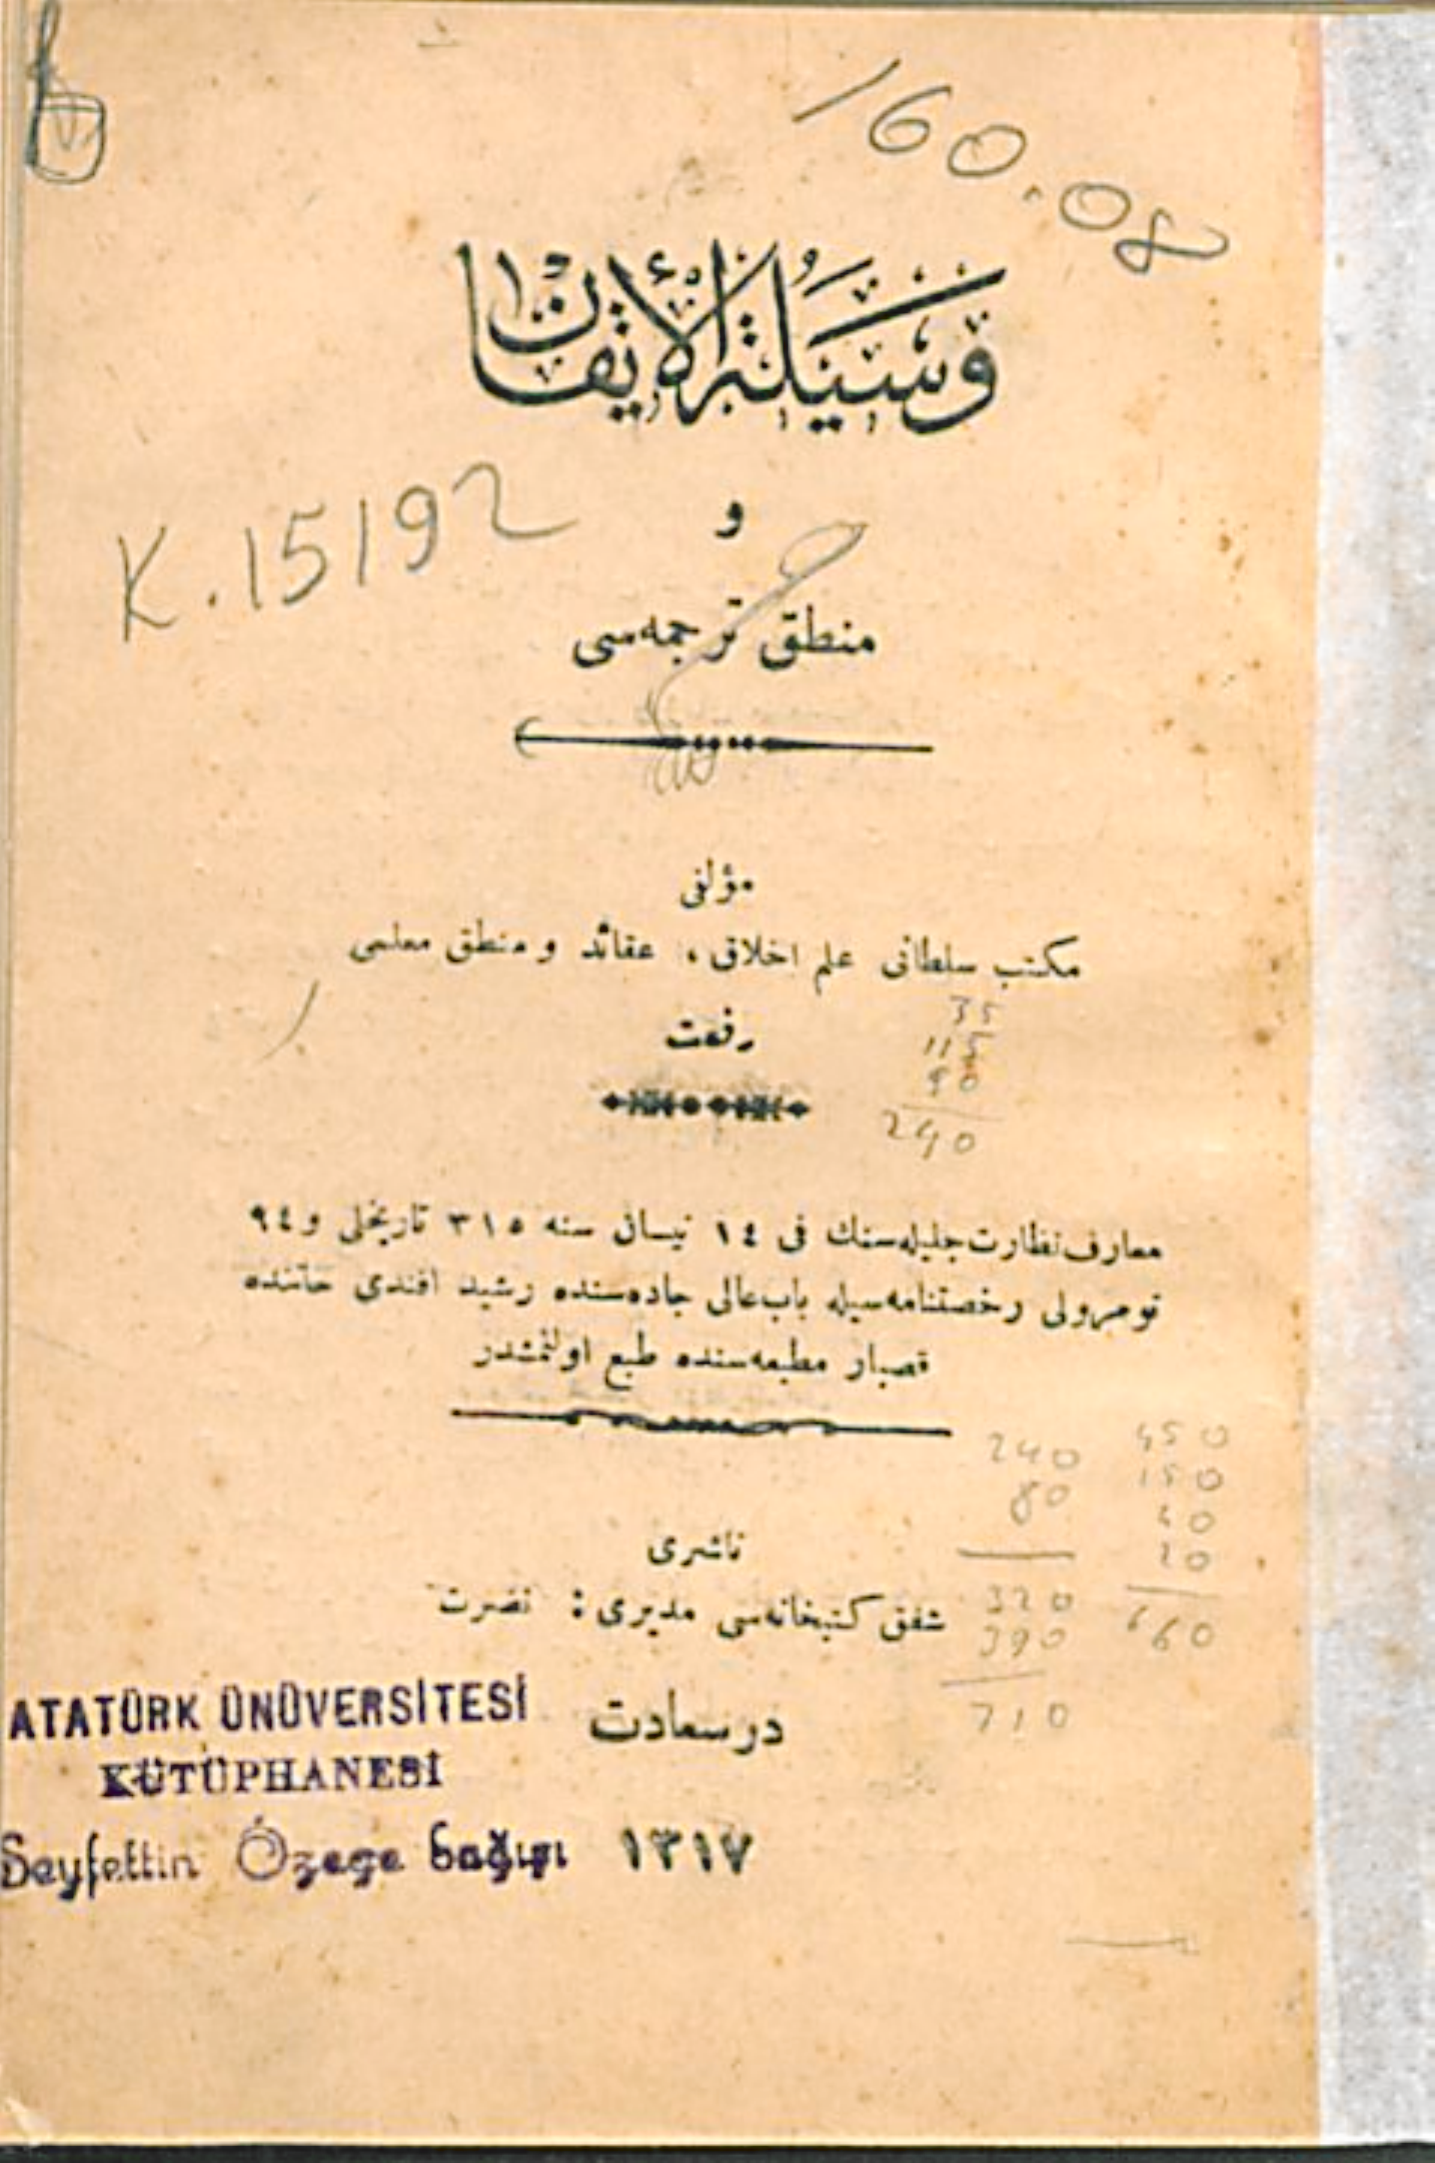 160.08
وَسيَلَة الْأِتقَان
K.15192
و
منطق ترجمه‌سی
مؤلفی
مكتب سلطانی علم اخلاق ، عقائد و منطق معلمی
رفعت
35
115
90
240
معارف نظارت جلیله‌سنك فی ١٤ نیسان سنه ٣١٥ تاریخلی و ٩٤
نومرولی رخصتنامه‌سیله باب‌عالی جاده‌سنده رشید افندی خاننده
قصبار مطبعه‌سنده طبع اولنمشدر
240
80
320
390
710
450
150
40
20
660
ناشری
شفق كتبخانه‌سی مدیری : نضرت
درسعادت
١٣١٧
ATATÜRK ÜNÜVERSİTESİ
KÜTÜPHANESİ
Seyfettin Özege bağışı